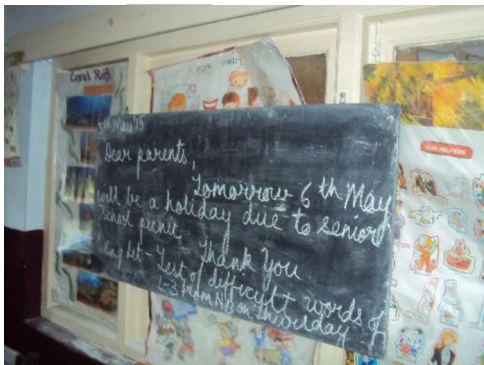 Coral Reef
OUR HELPERS
5th May'15
Dear parents,
Tomorrow 6th May
will be a holiday due to senior
school picnic.
Thank You
Eng Lit - Test of difficult words of
L-3 from NB on Thursday